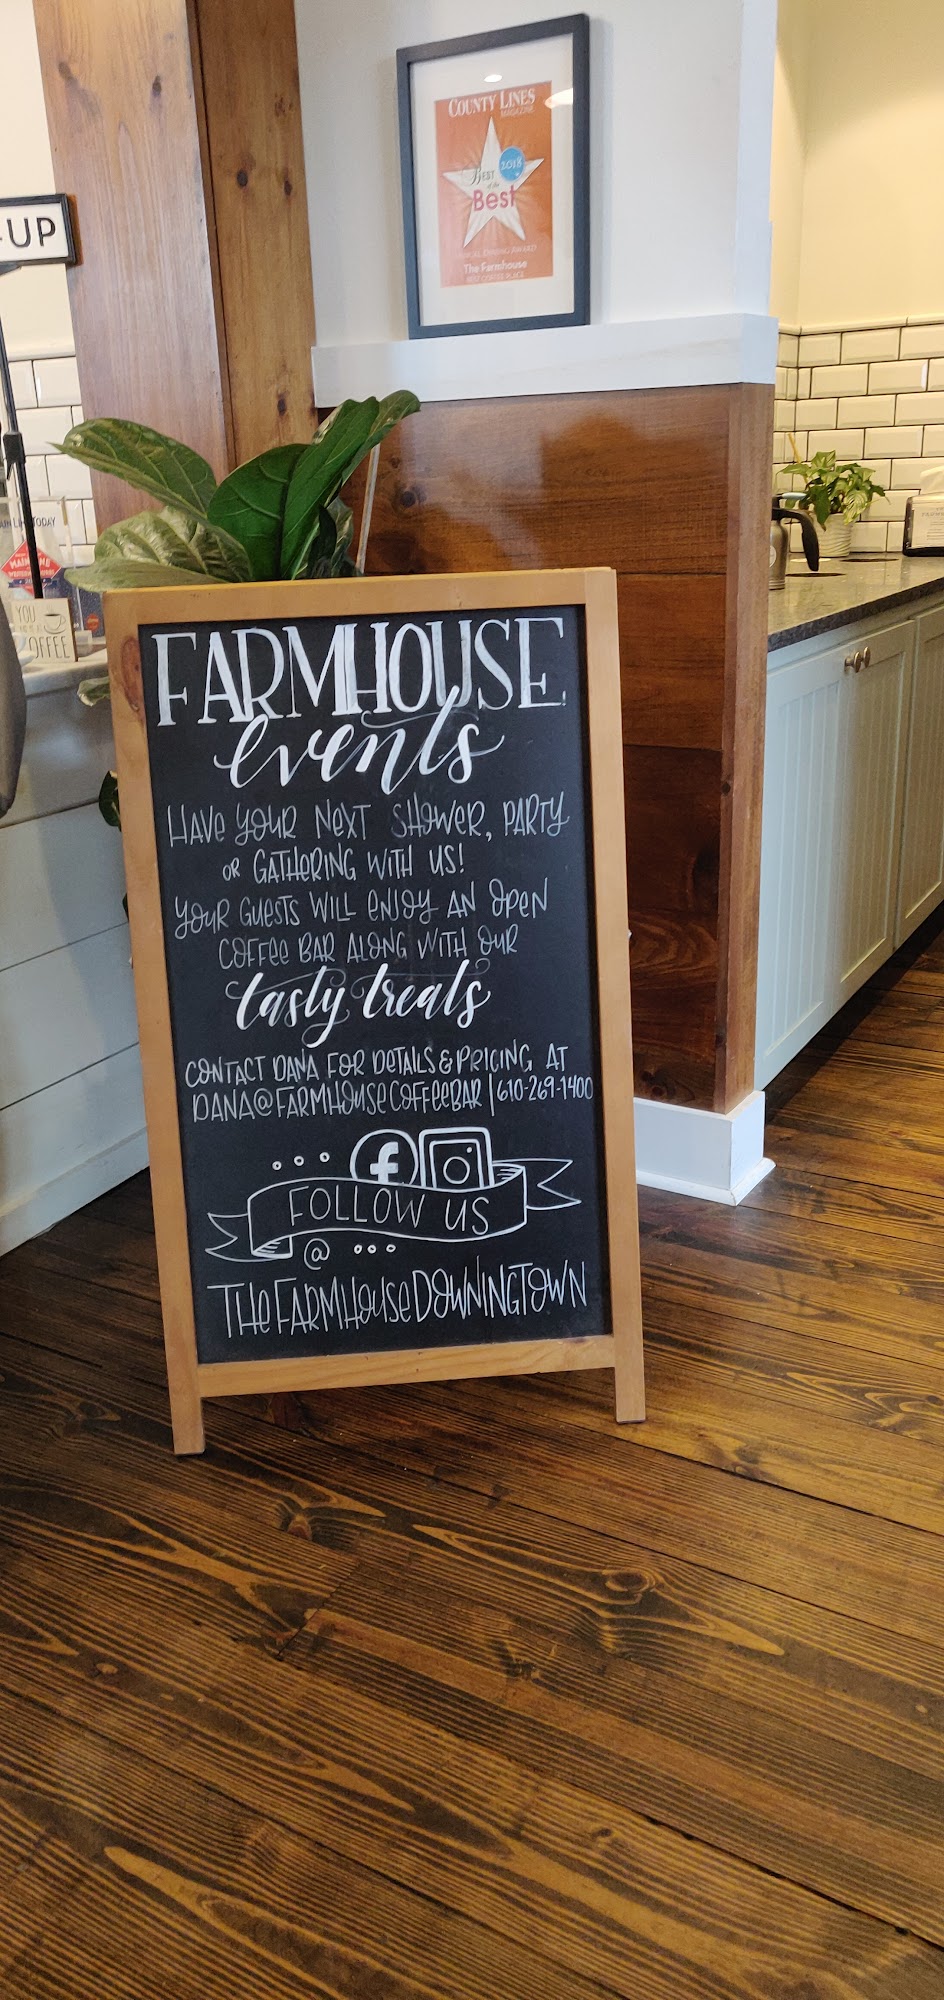 COUNTY LINES
MAGAZINE
2018
BEST
of the
Best
The Farmhouse
BEST COFFEE PLACE
-UP
TODAY
YOU
COFFEE
FARMHOUSE
events
HAVE YOUR NEXT SHOWER, PARTY
OR GATHERING WITH US!
YOUR GUESTS WILL ENJOY AN OPEN
COFFEE BAR ALONG WITH OUR
tasty treats
CONTACT DANA FOR DETAILS & PRICING AT
DANA@FARMHOUSECOFFEEBAR | 610-269-1400
FOLLOW US
@
THEFARMHOUSEDOWNINGTOWN